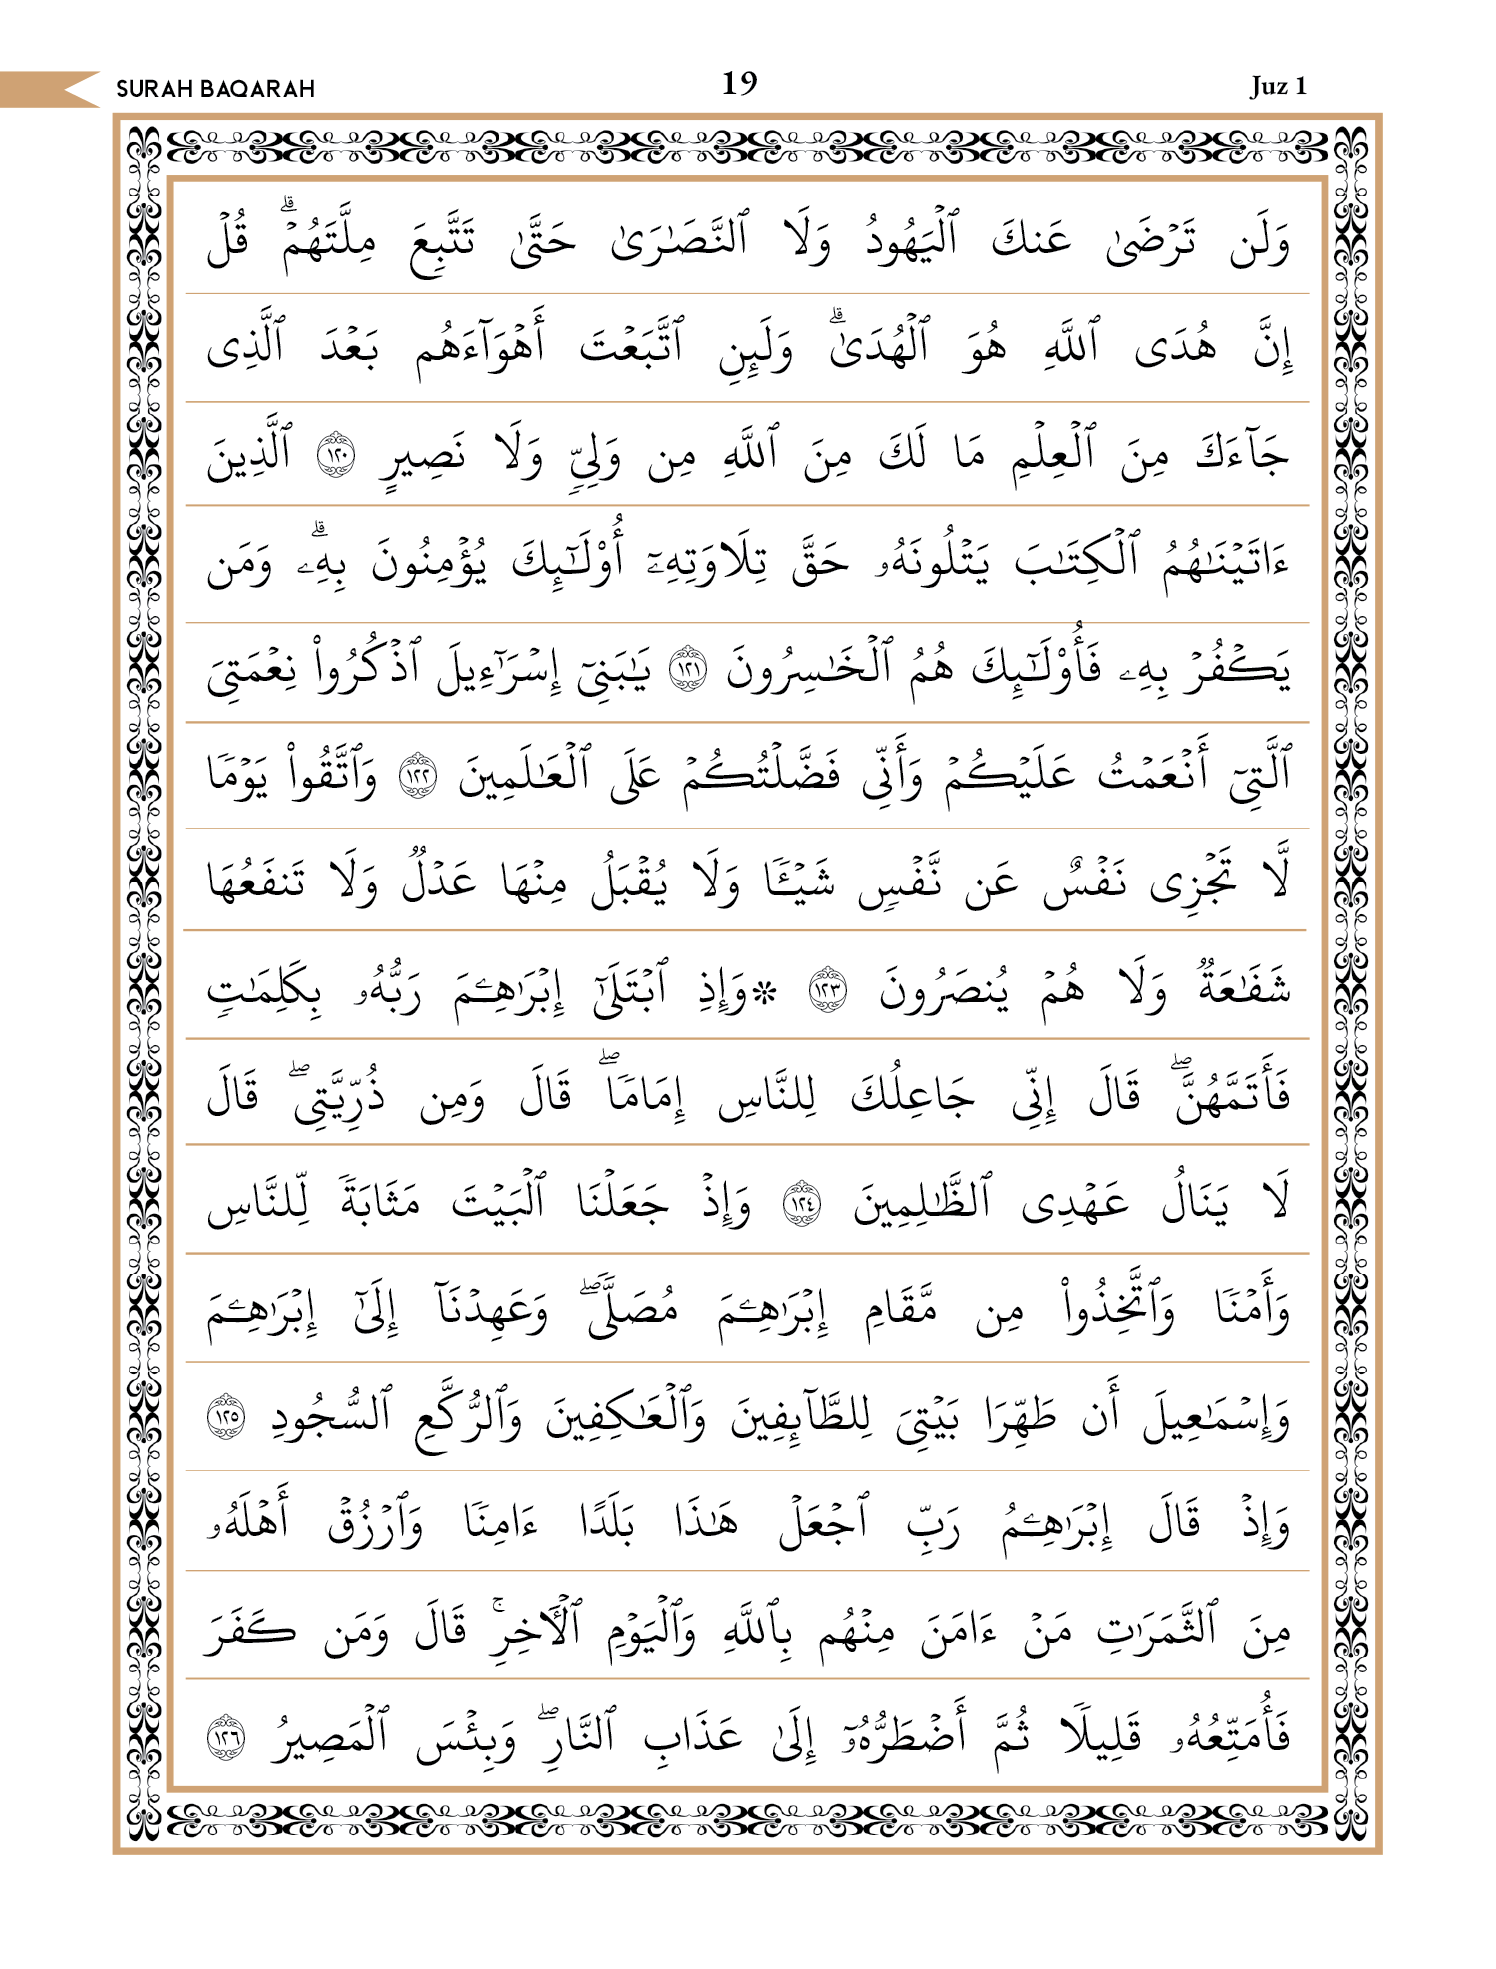 SURAH BAQARAH 19 Juz 1
وَلَن تَرْضَىٰ عَنكَ ٱلْيَهُودُ وَلَا ٱلنَّصَـٰرَىٰ حَتَّىٰ تَتَّبِعَ مِلَّتَهُمْ ۗ قُلْ
إِنَّ هُدَى ٱللَّهِ هُوَ ٱلْهُدَىٰ ۗ وَلَئِنِ ٱتَّبَعْتَ أَهْوَآءَهُم بَعْدَ ٱلَّذِى
جَآءَكَ مِنَ ٱلْعِلْمِ مَا لَكَ مِنَ ٱللَّهِ مِن وَلِىٍّ وَلَا نَصِيرٍ ١٢٠ ٱلَّذِينَ
ءَاتَيْنَـٰهُمُ ٱلْكِتَـٰبَ يَتْلُونَهُۥ حَقَّ تِلَاوَتِهِۦٓ أُو۟لَـٰٓئِكَ يُؤْمِنُونَ بِهِۦ ۗ وَمَن
يَكْفُرْ بِهِۦ فَأُو۟لَـٰٓئِكَ هُمُ ٱلْخَـٰسِرُونَ ١٢١ يَـٰبَنِىٓ إِسْرَٰٓءِيلَ ٱذْكُرُوا۟ نِعْمَتِىَ
ٱلَّتِىٓ أَنْعَمْتُ عَلَيْكُمْ وَأَنِّى فَضَّلْتُكُمْ عَلَى ٱلْعَـٰلَمِينَ ١٢٢ وَٱتَّقُوا۟ يَوْمًا
لَّا تَجْزِى نَفْسٌ عَن نَّفْسٍ شَيْـًٔا وَلَا يُقْبَلُ مِنْهَا عَدْلٌ وَلَا تَنفَعُهَا
شَفَـٰعَةٌ وَلَا هُمْ يُنصَرُونَ ١٢٣ ۞وَإِذِ ٱبْتَلَىٰٓ إِبْرَٰهِـۧمَ رَبُّهُۥ بِكَلِمَـٰتٍ
فَأَتَمَّهُنَّ ۖ قَالَ إِنِّى جَاعِلُكَ لِلنَّاسِ إِمَامًا ۖ قَالَ وَمِن ذُرِّيَّتِى ۖ قَالَ
لَا يَنَالُ عَهْدِى ٱلظَّـٰلِمِينَ ١٢٤ وَإِذْ جَعَلْنَا ٱلْبَيْتَ مَثَابَةً لِّلنَّاسِ
وَأَمْنًا وَٱتَّخِذُوا۟ مِن مَّقَامِ إِبْرَٰهِـۧمَ مُصَلًّى ۖ وَعَهِدْنَآ إِلَىٰٓ إِبْرَٰهِـۧمَ
وَإِسْمَـٰعِيلَ أَن طَهِّرَا بَيْتِىَ لِلطَّآئِفِينَ وَٱلْعَـٰكِفِينَ وَٱلرُّكَّعِ ٱلسُّجُودِ ١٢٥
وَإِذْ قَالَ إِبْرَٰهِـۧمُ رَبِّ ٱجْعَلْ هَـٰذَا بَلَدًا ءَامِنًا وَٱرْزُقْ أَهْلَهُۥ
مِنَ ٱلثَّمَرَٰتِ مَنْ ءَامَنَ مِنْهُم بِٱللَّهِ وَٱلْيَوْمِ ٱلْـَٔاخِرِ ۚ قَالَ وَمَن كَفَرَ
فَأُمَتِّعُهُۥ قَلِيلًا ثُمَّ أَضْطَرُّهُۥٓ إِلَىٰ عَذَابِ ٱلنَّارِ ۖ وَبِئْسَ ٱلْمَصِيرُ ١٢٦